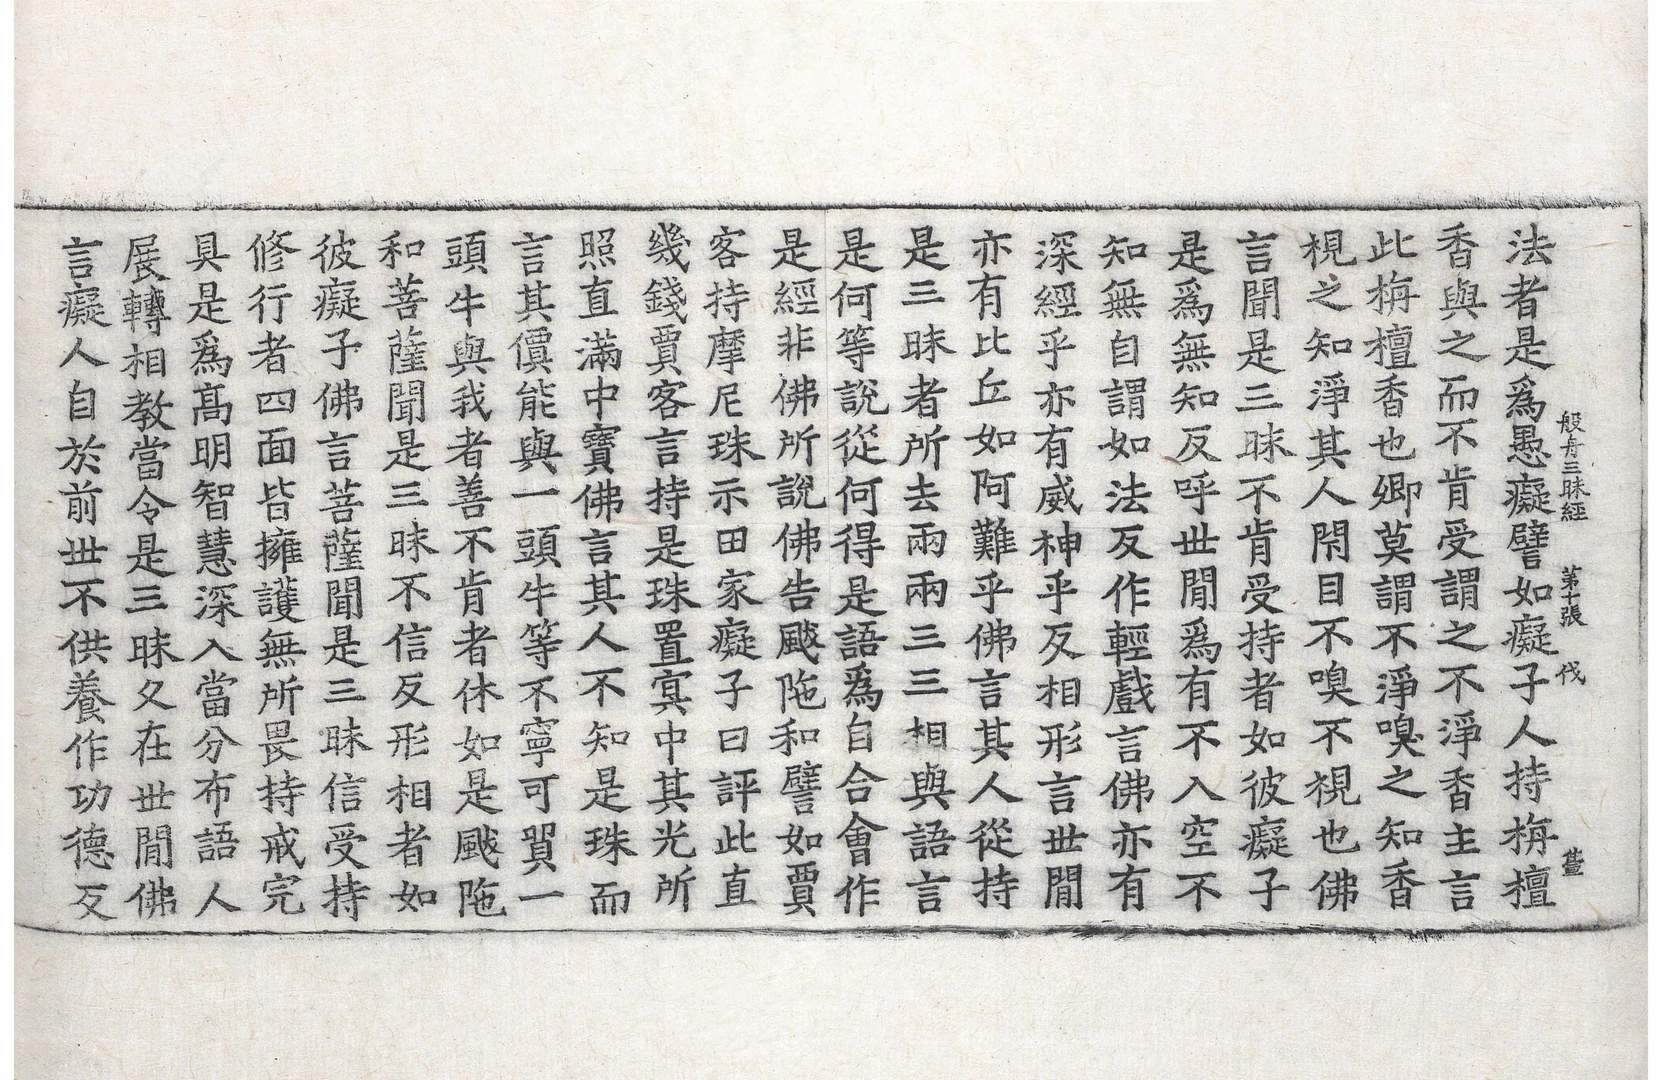 般舟三昧經 第十張 伐
法者是爲愚癡譬如癡子人持栴檀
香與之而不肯受謂之不淨香主言
此栴檀香也卿莫謂不淨嗅之知香
視之知淨其人閇目不嗅不視也佛
言聞是三昧不肯受持者如彼癡子
是爲無知反呼世閒爲有不入空不
知無自謂如法反作輕戲言佛亦有
深經乎亦有威神乎反相形言世閒
亦有比丘如阿難乎佛言其人從持
是三昧者所去兩兩三三相與語言
是何等說從何得是語爲自合會作
是經非佛所說佛告颰陁和譬如賈
客持摩尼珠示田家癡子曰評此直
幾錢賈客言持是珠置冥中其光所
照直滿中寶佛言其人不知是珠而
言其價能與一頭牛等不寧可貿一
頭牛與我者善不肯者休如是颰陁
和菩薩聞是三昧不信反形相者如
彼癡子佛言菩薩聞是三昧信受持
修行者四面皆擁護無所畏持戒完
具是爲高明智慧深入當分布語人
展轉相教當令是三昧久在世閒佛
言癡人自於前世不供養作功德反